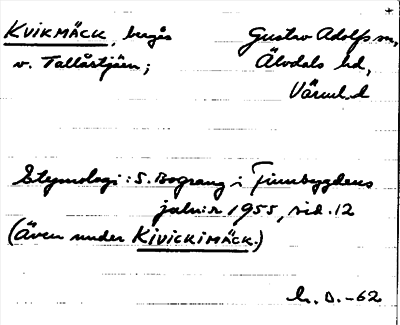 KVIKMÄCK, bergås Gustav Adolfs sn,
v. Tallåstjärn; Älvdals hd,
Värml. l
Etymologi: S. Bograng i Finnbygdens
julnr 1955, sid. 12
(Även under KIVICKIMÄCK.)
L. D. -62